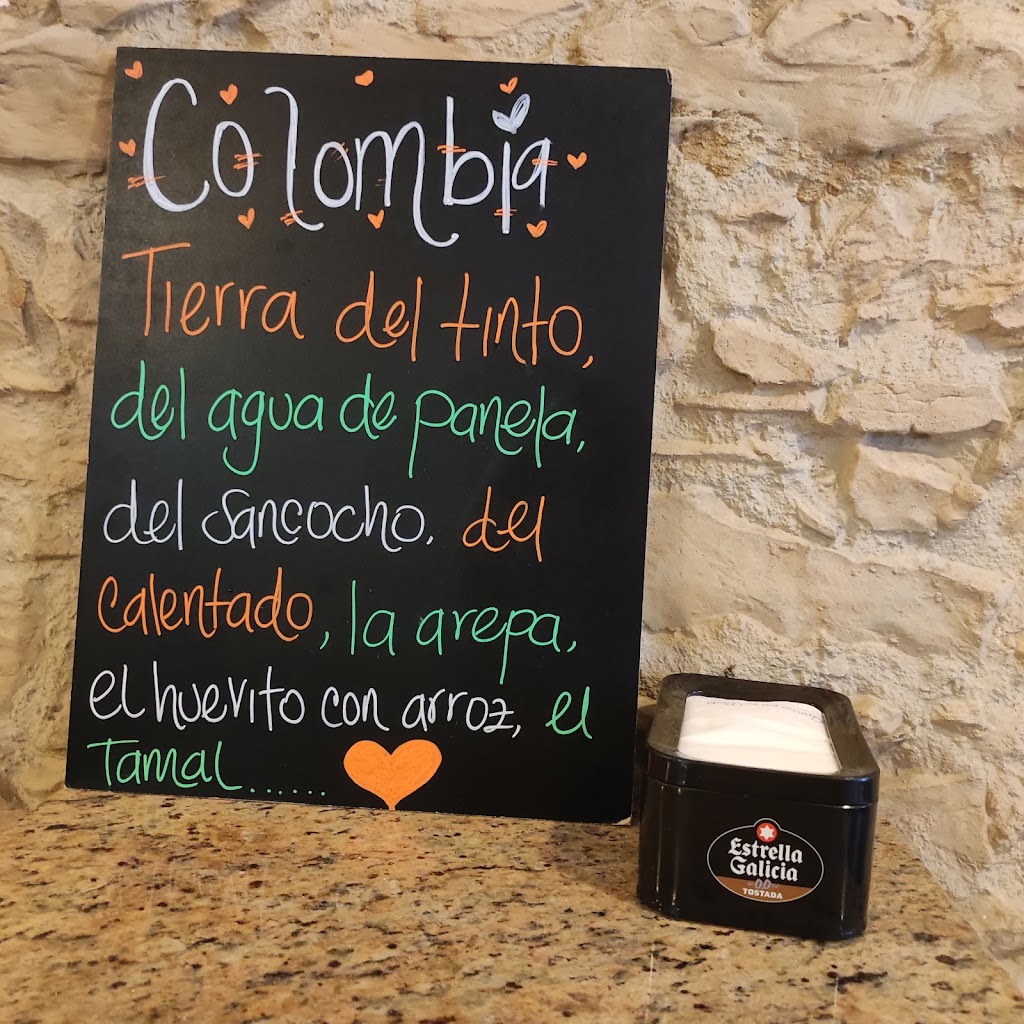 Colombia
Tierra del tinto,
del agua de panela,
del sancocho. del
calentado, la arepa,
el huevito con arroz, el
Tamal......
Estrella
Galicia
0,0
TOSTADA